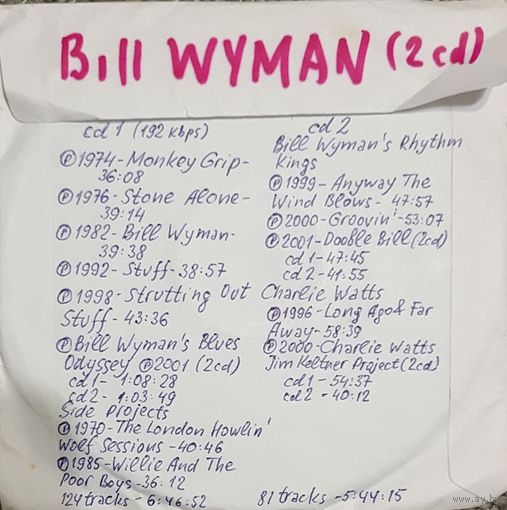 Bill WYMAN (2cd)
cd 1 (192 kbps)
℗1974-Monkey Grip-
36:08
℗1976-Stone Alone-
39:14
℗1982-Bill Wyman-
39:38
℗1992-Stuff-38:57
℗1998-Strutting Out
Stuff-43:36
℗Bill Wyman's Blues
Odyssey ℗2001 (2cd)
cd1- 1:08:28
cd2- 1:03:49
Side Projects
℗1970-The London Howlin'
Wolf Sessions-40:46
℗1985-Willie And The
Poor Boys-36:12
124 tracks-6:46:52
cd 2
Bill Wyman's Rhythm
Kings
℗1999-Anyway The
Wind Blows-47:57
℗2000-Groovin'-53:07
℗2001-Dooble Bill (2cd)
cd1-47:45
cd2-41:55
Charlie Watts
℗1996-Long Ago & Far
Away-58:39
℗2000-Charlie Watts
Jim Keltner Project (2cd)
cd1-54:37
cd2-40:12
81 tracks-5:44:15
www.ay.by